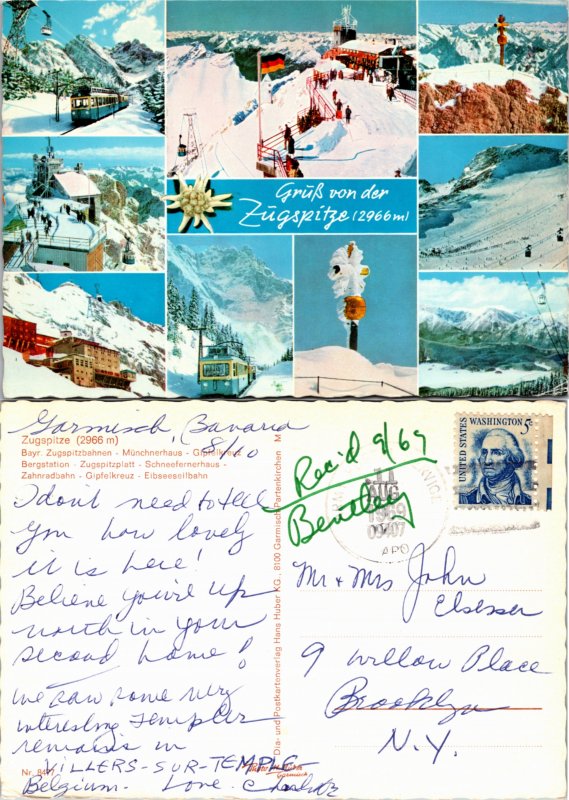 Gruß von der
Zugspitze (2966m)
Garmisch, Bavaria
8/10
Zugspitze (2966 m)
Bayr. Zugspitzbahnen - Münchnerhaus - Gipfelkreuz
Bergstation - Zugspitzplatt - Schneefernerhaus -
Zahnradbahn - Gipfelkreuz - Eibseeseilbahn
I don't need to tell
you how lovely
it is here!
Believe you're up
north in your
second home!
We saw some very
interesting Templer
remains in
VILLERS-SUR-TEMPLE
Belgium. Love
Nr. 8477
Dia- und Postkartenverlag Hans Huber KG., 8100 Garmisch-Partenkirchen
Garmisch
Rec'd 9/69
Bentley
11
AUG
1969
09407
APO
UNITED STATES
WASHINGTON 5c
Mr + Mrs John
Elsesser
9 Willow Place
Brooklyn
N.Y.